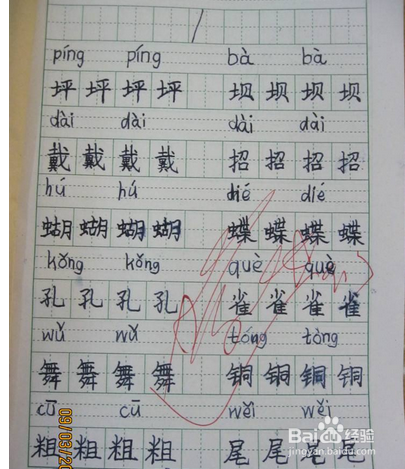 píng píng bà bà
坪 坪 坪 坪 坝 坝 坝 坝
dài dài dài dài
戴 戴 戴 戴 招 招 招 招
hú hú dié dié
蝴 蝴 蝴 蝴 蝶 蝶 蝶 蝶
kǒng kǒng què què
孔 孔 孔 孔 雀 雀 雀 雀
wǔ wǔ tóng tòng
舞 舞 舞 舞 铜 铜 铜 铜
cū cū wěi wěi
粗 粗 粗 粗 尾 尾 尾 尾
Baidu 经验
jingyan.baidu.com